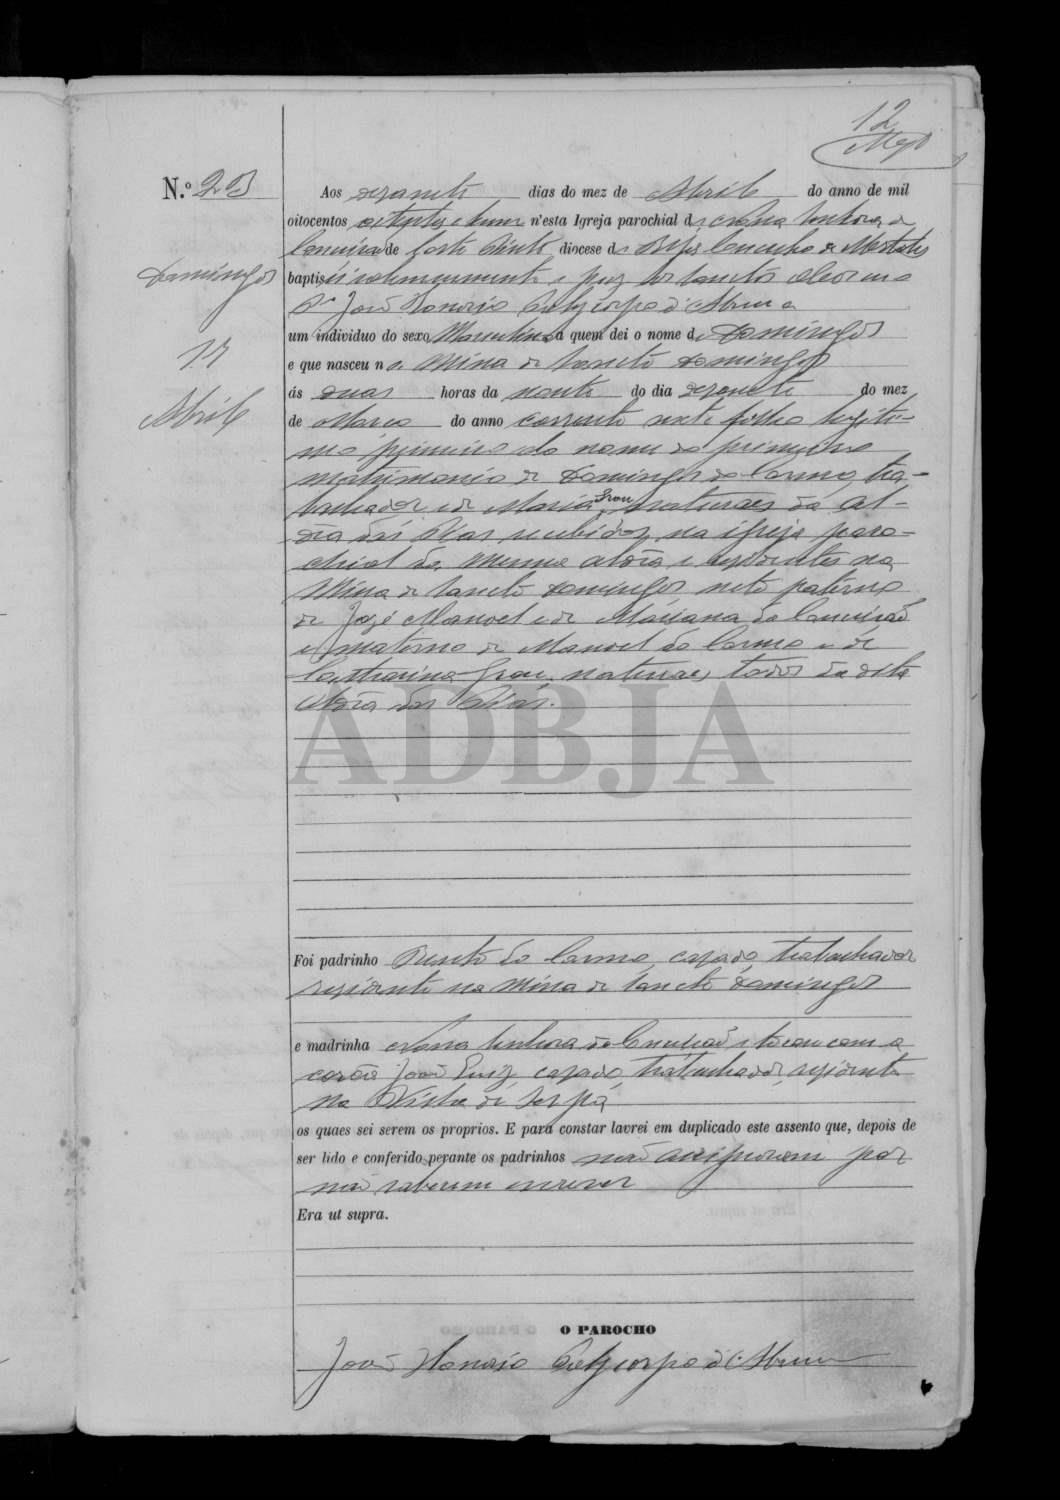 12
N.º 23
Aos dezasete dias do mez de Abril do anno de mil
oitocentos oitenta e hum n'esta Igreja parochial de Nossa Senhora da
Conceição de Corte do Pinto diocese de Beja Concelho de Mertola
Domingos
baptisei solemnemente e puz os sanctos oleos eu o
P.e João Honorio Polycarpo d'Abreu a
um individuo do sexo Masculino a quem dei o nome de Domingos
17
e que nasceu na Mina de Sancto Domingos
ás duas horas da noute do dia dezasete do mez
Abril
de Março do anno corrente neste filho legiti-
mo primeiro do nome do primeiro
matrimonio de Domingos do Carmo, tra-
balhador e de Maria naturaes da Al-
dêa das recebidos na igreja paro-
chial da mesma aldêa, e residentes na
Mina de Sancto Domingos, neto paterno
de José Manoel e de Mariana da Conceição
e materno de Manoel do Carmo e de
Catharina naturaes todos da dita
Aldêa das
ADBJA
Foi padrinho Bento do Carmo, casado, trabalhador
residente na Mina de Sancto Domingos
e madrinha Nossa Senhora da Conceição e tocou com a
corôa João Luiz, casado, trabalhador, residente
na de Serpa
os quaes sei serem os proprios. E para constar lavrei em duplicado este assento que, depois de
ser lido e conferido perante os padrinhos não assignaram por
não saberem escrever
Era ut supra.
O PAROCHO
João Honorio Polycarpo d'Abreu